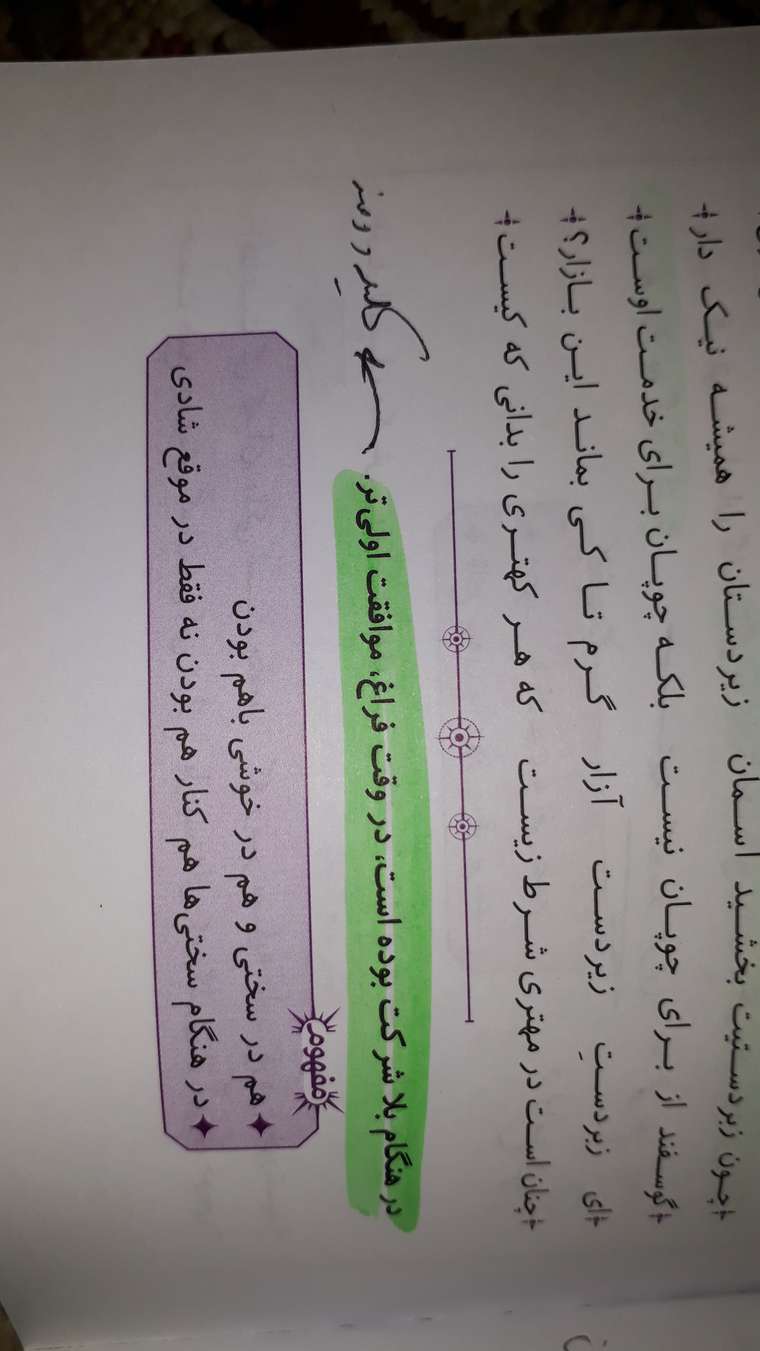 چون زبردستیت بخشید آسمان زیردستان را همیشه نیک دار
گوسفند از برای چوپان نیست بلکه چوپان برای خدمت اوست
ای زبردستِ زیردست آزار گرم تا کی بماند این بازار؟
چنان است در مهتری شرط زیست که هر کهتری را بدانی که کیست
در هنگام بلا شرکت بوده است، در وقت فراغ، موافقت اولی‌تر.
کلید و رمز
مفهوم
هم در سختی و هم در خوشی باهم بودن
در هنگام سختی‌ها هم کنار هم بودن نه فقط در موقع شادی